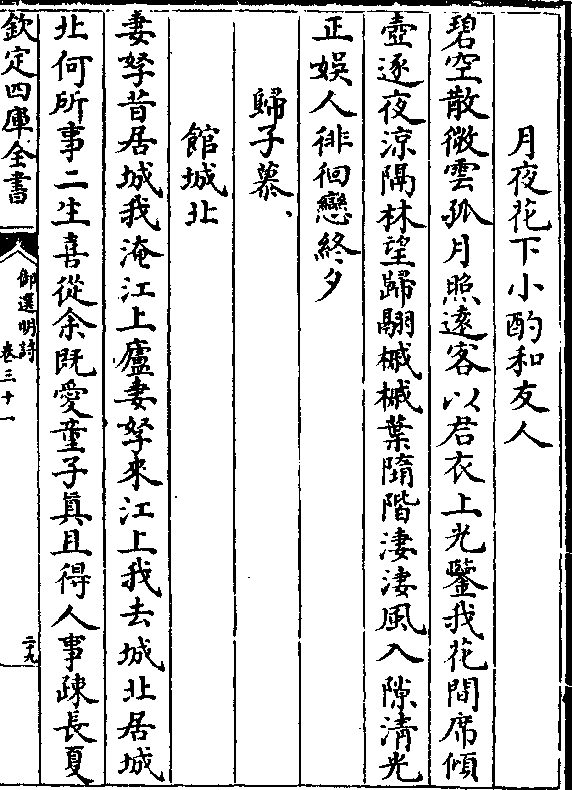 月夜花下小酌和友人
碧空散微雲孤月照逺客以君衣上光鑒我花間席傾
壺逐夜涼隔林望歸翮槭槭葉隋階淒淒風入隙清光
正娛人徘徊戀終夕
歸子慕
館城北
妻孥昔居城我淹江上廬妻孥來江上我去城北居城
北何所事二生喜從余既愛童子真且得人事疎長夏
欽定四庫全書
御選明詩
卷三十一
二十九